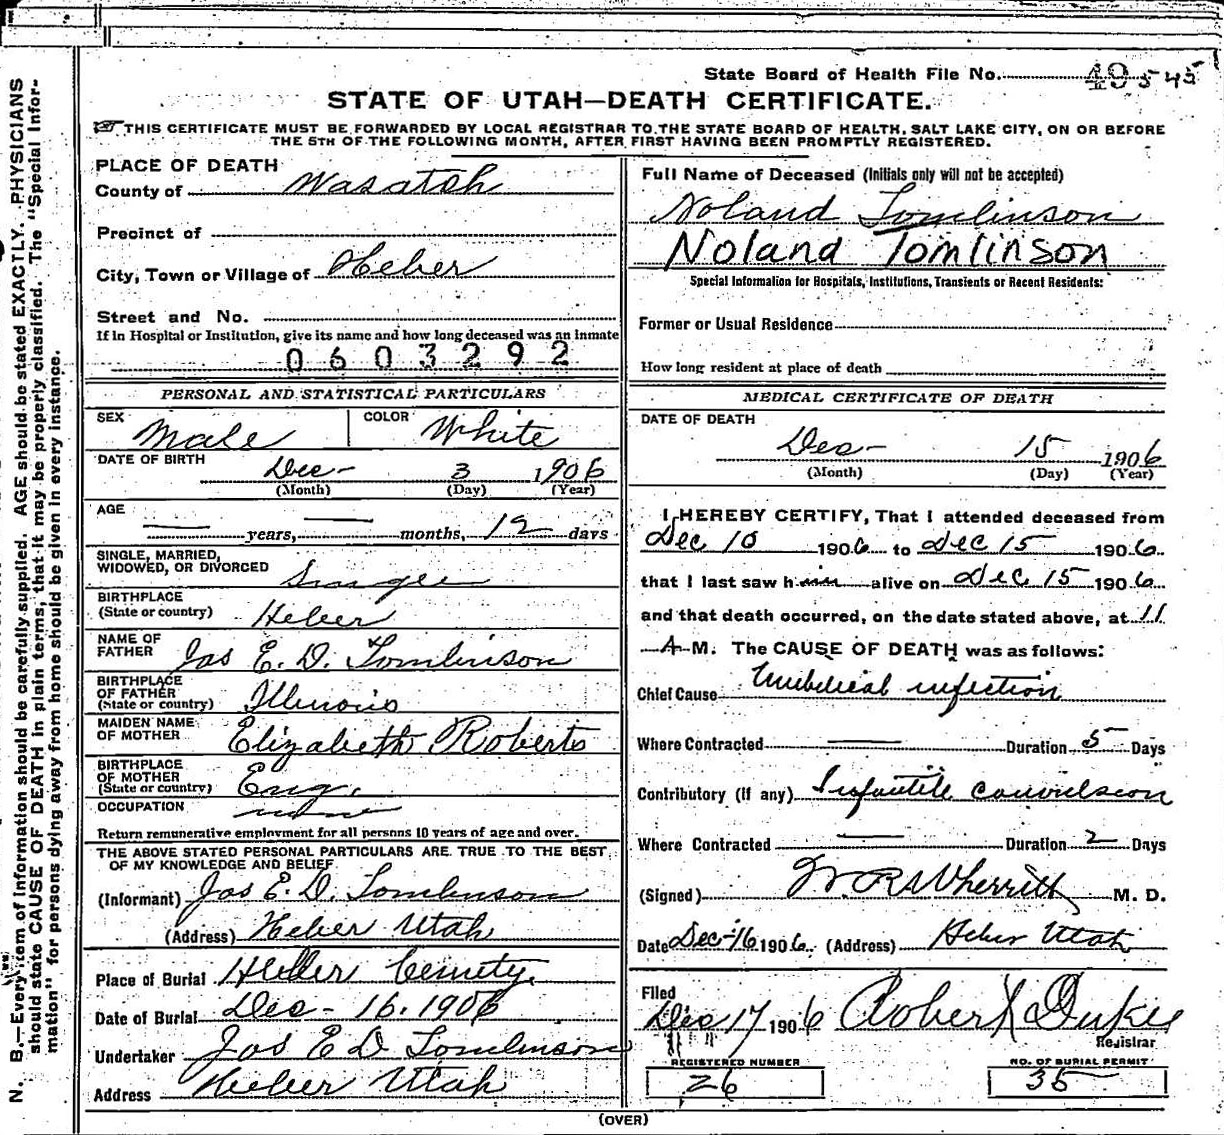 State Board of Health File No. 49545
STATE OF UTAH—DEATH CERTIFICATE.
THIS CERTIFICATE MUST BE FORWARDED BY LOCAL REGISTRAR TO THE STATE BOARD OF HEALTH, SALT LAKE CITY, ON OR BEFORE
THE 5TH OF THE FOLLOWING MONTH, AFTER FIRST HAVING BEEN PROMPTLY REGISTERED.
N. B.—Every item of Information should be carefully supplied. AGE should be stated EXACTLY. PHYSICIANS
should state CAUSE OF DEATH in plain terms, that it may be properly classified. The "Special Infor-
mation" for persons dying away from home should be given in every instance.
PLACE OF DEATH
County of Wasatch
Precinct of
City, Town or Village of Heber
Street and No.
If in Hospital or Institution, give its name and how long deceased was an inmate
0603292
PERSONAL AND STATISTICAL PARTICULARS
SEX Male COLOR White
DATE OF BIRTH Dec- 3 1906
(Month) (Day) (Year)
AGE
— years, — months, 12 days
SINGLE, MARRIED,
WIDOWED, OR DIVORCED Single
BIRTHPLACE
(State or country) Heber
NAME OF
FATHER Jas E. D. Tomlinson
BIRTHPLACE
OF FATHER
(State or country) Illinois
MAIDEN NAME
OF MOTHER Elizabeth Roberts
BIRTHPLACE
OF MOTHER
(State or country) Eng.
OCCUPATION none
Return remunerative employment for all persons 10 years of age and over.
THE ABOVE STATED PERSONAL PARTICULARS ARE TRUE TO THE BEST
OF MY KNOWLEDGE AND BELIEF
(Informant) Jas E. D. Tomlinson
(Address) Heber Utah
Place of Burial Heber Cemety.
Date of Burial Dec - 16. 1906
Undertaker Jas E D Tomlinson
Address Heber Utah
Full Name of Deceased (Initials only will not be accepted)
Noland Tomlinson
Noland Tomlinson
Special Information for Hospitals, Institutions, Transients or Recent Residents:
Former or Usual Residence
How long resident at place of death
MEDICAL CERTIFICATE OF DEATH
DATE OF DEATH
Dec- 15 1906
(Month) (Day) (Year)
I HEREBY CERTIFY, That I attended deceased from
Dec 10 1906 to Dec 15 1906
that I last saw him alive on Dec 15 1906
and that death occurred, on the date stated above, at 11
A M. The CAUSE OF DEATH was as follows:
Chief Cause Umbilical infection
Where Contracted — Duration 5 Days
Contributory (if any) Infantile convulsion
Where Contracted — Duration 2 Days
(Signed) W R Wherritt M. D.
Date Dec-16 1906. (Address) Heber Utah
Filed
Dec 17 1906 Robert Duke
Registrar
REGISTERED NUMBER
26
NO. OF BURIAL PERMIT
35
(OVER)